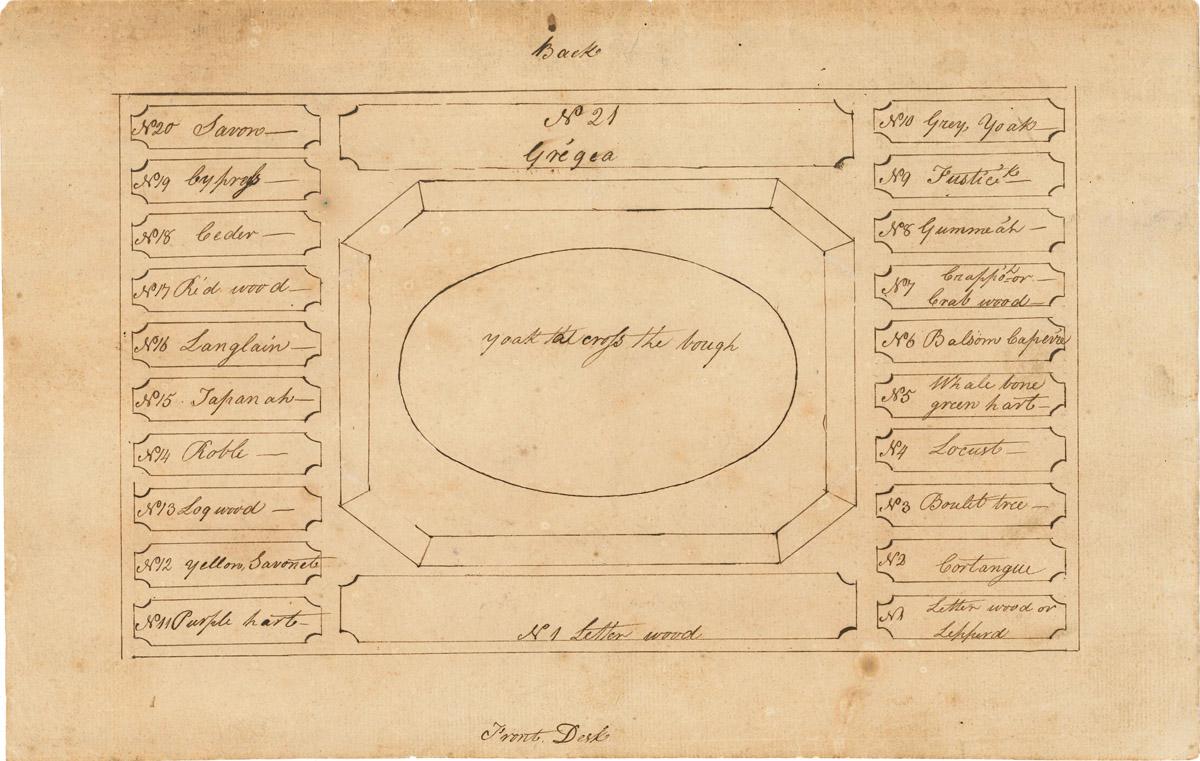 Back
No 20 Savon
No 19 Cypress
No 18 Ceder
No 17 Red wood
No 16 Langlain
No 15 Tapanah
No 14 Roble
No 13 Logwood
No 12 Yellow Savonet
No 11 Purple hart
No 21
Grégea
yoak the cross the bough
No 1 Letter wood
No 10 Grey Yoak
No 9 Fustick
No 8 Gummeah
No 7 Crappo or
Crab wood
No 6 Balsom Capevie
No 5 Whale bone
green hart
No 4 Locust
No 3 Boulit tree
No 2 Cortangue
No 1 Letter wood or
Leppird
Front Desk